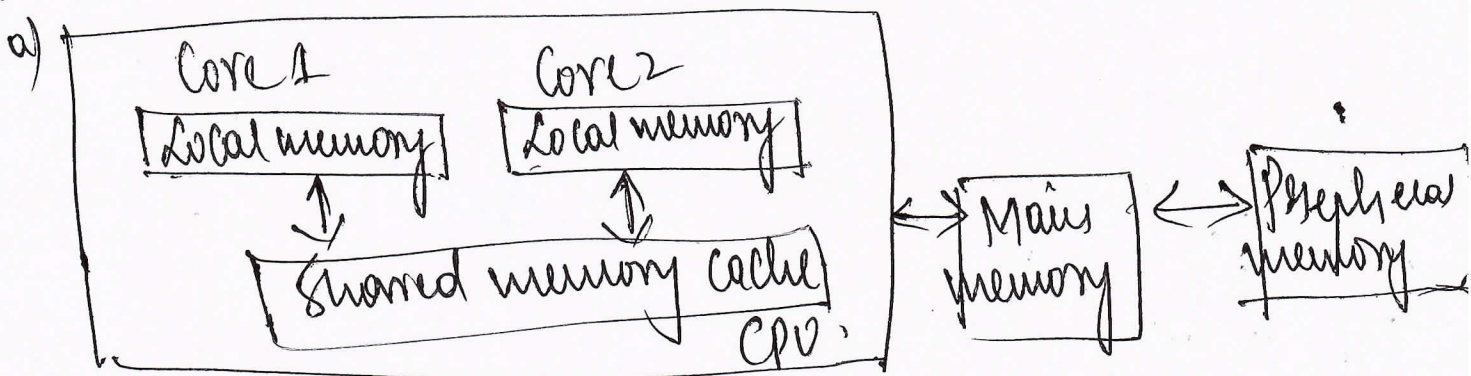 a)
Core 1 Core 2
Local memory Local memory
Shared memory cache
CPU
Main
memory
Peripheral
memory